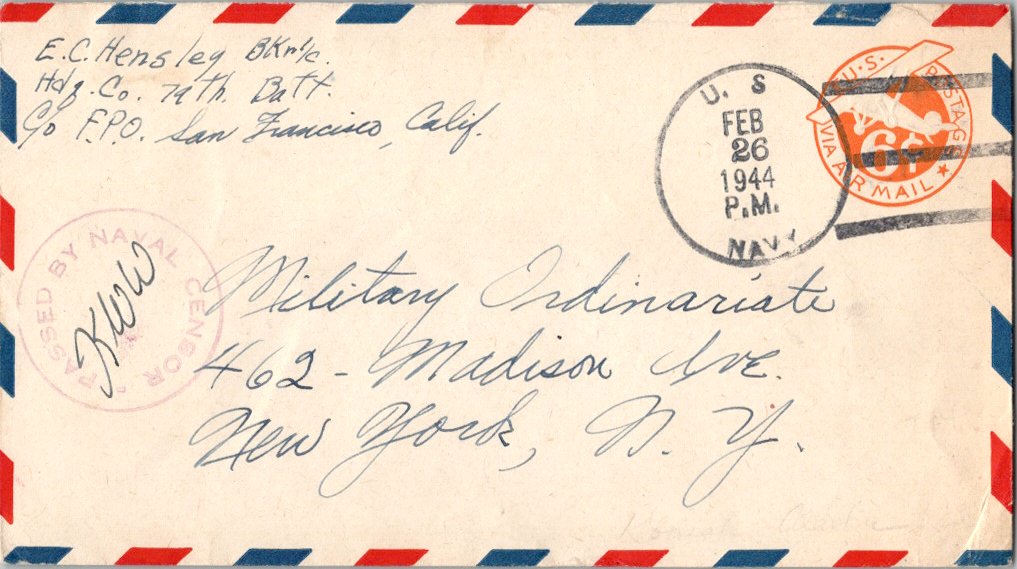 E.C. Hensley BKr1/c.
Hdq. Co. 79th. Batt.
C/o F.P.O. San Francisco, Calif.
U. S
FEB
26
1944
P.M.
NAVY
U.S. POSTAGE
6¢
VIA AIR MAIL
PASSED BY NAVAL CENSOR
KWW
Military Ordinariate
462 - Madison Ave.
New York, N. Y.